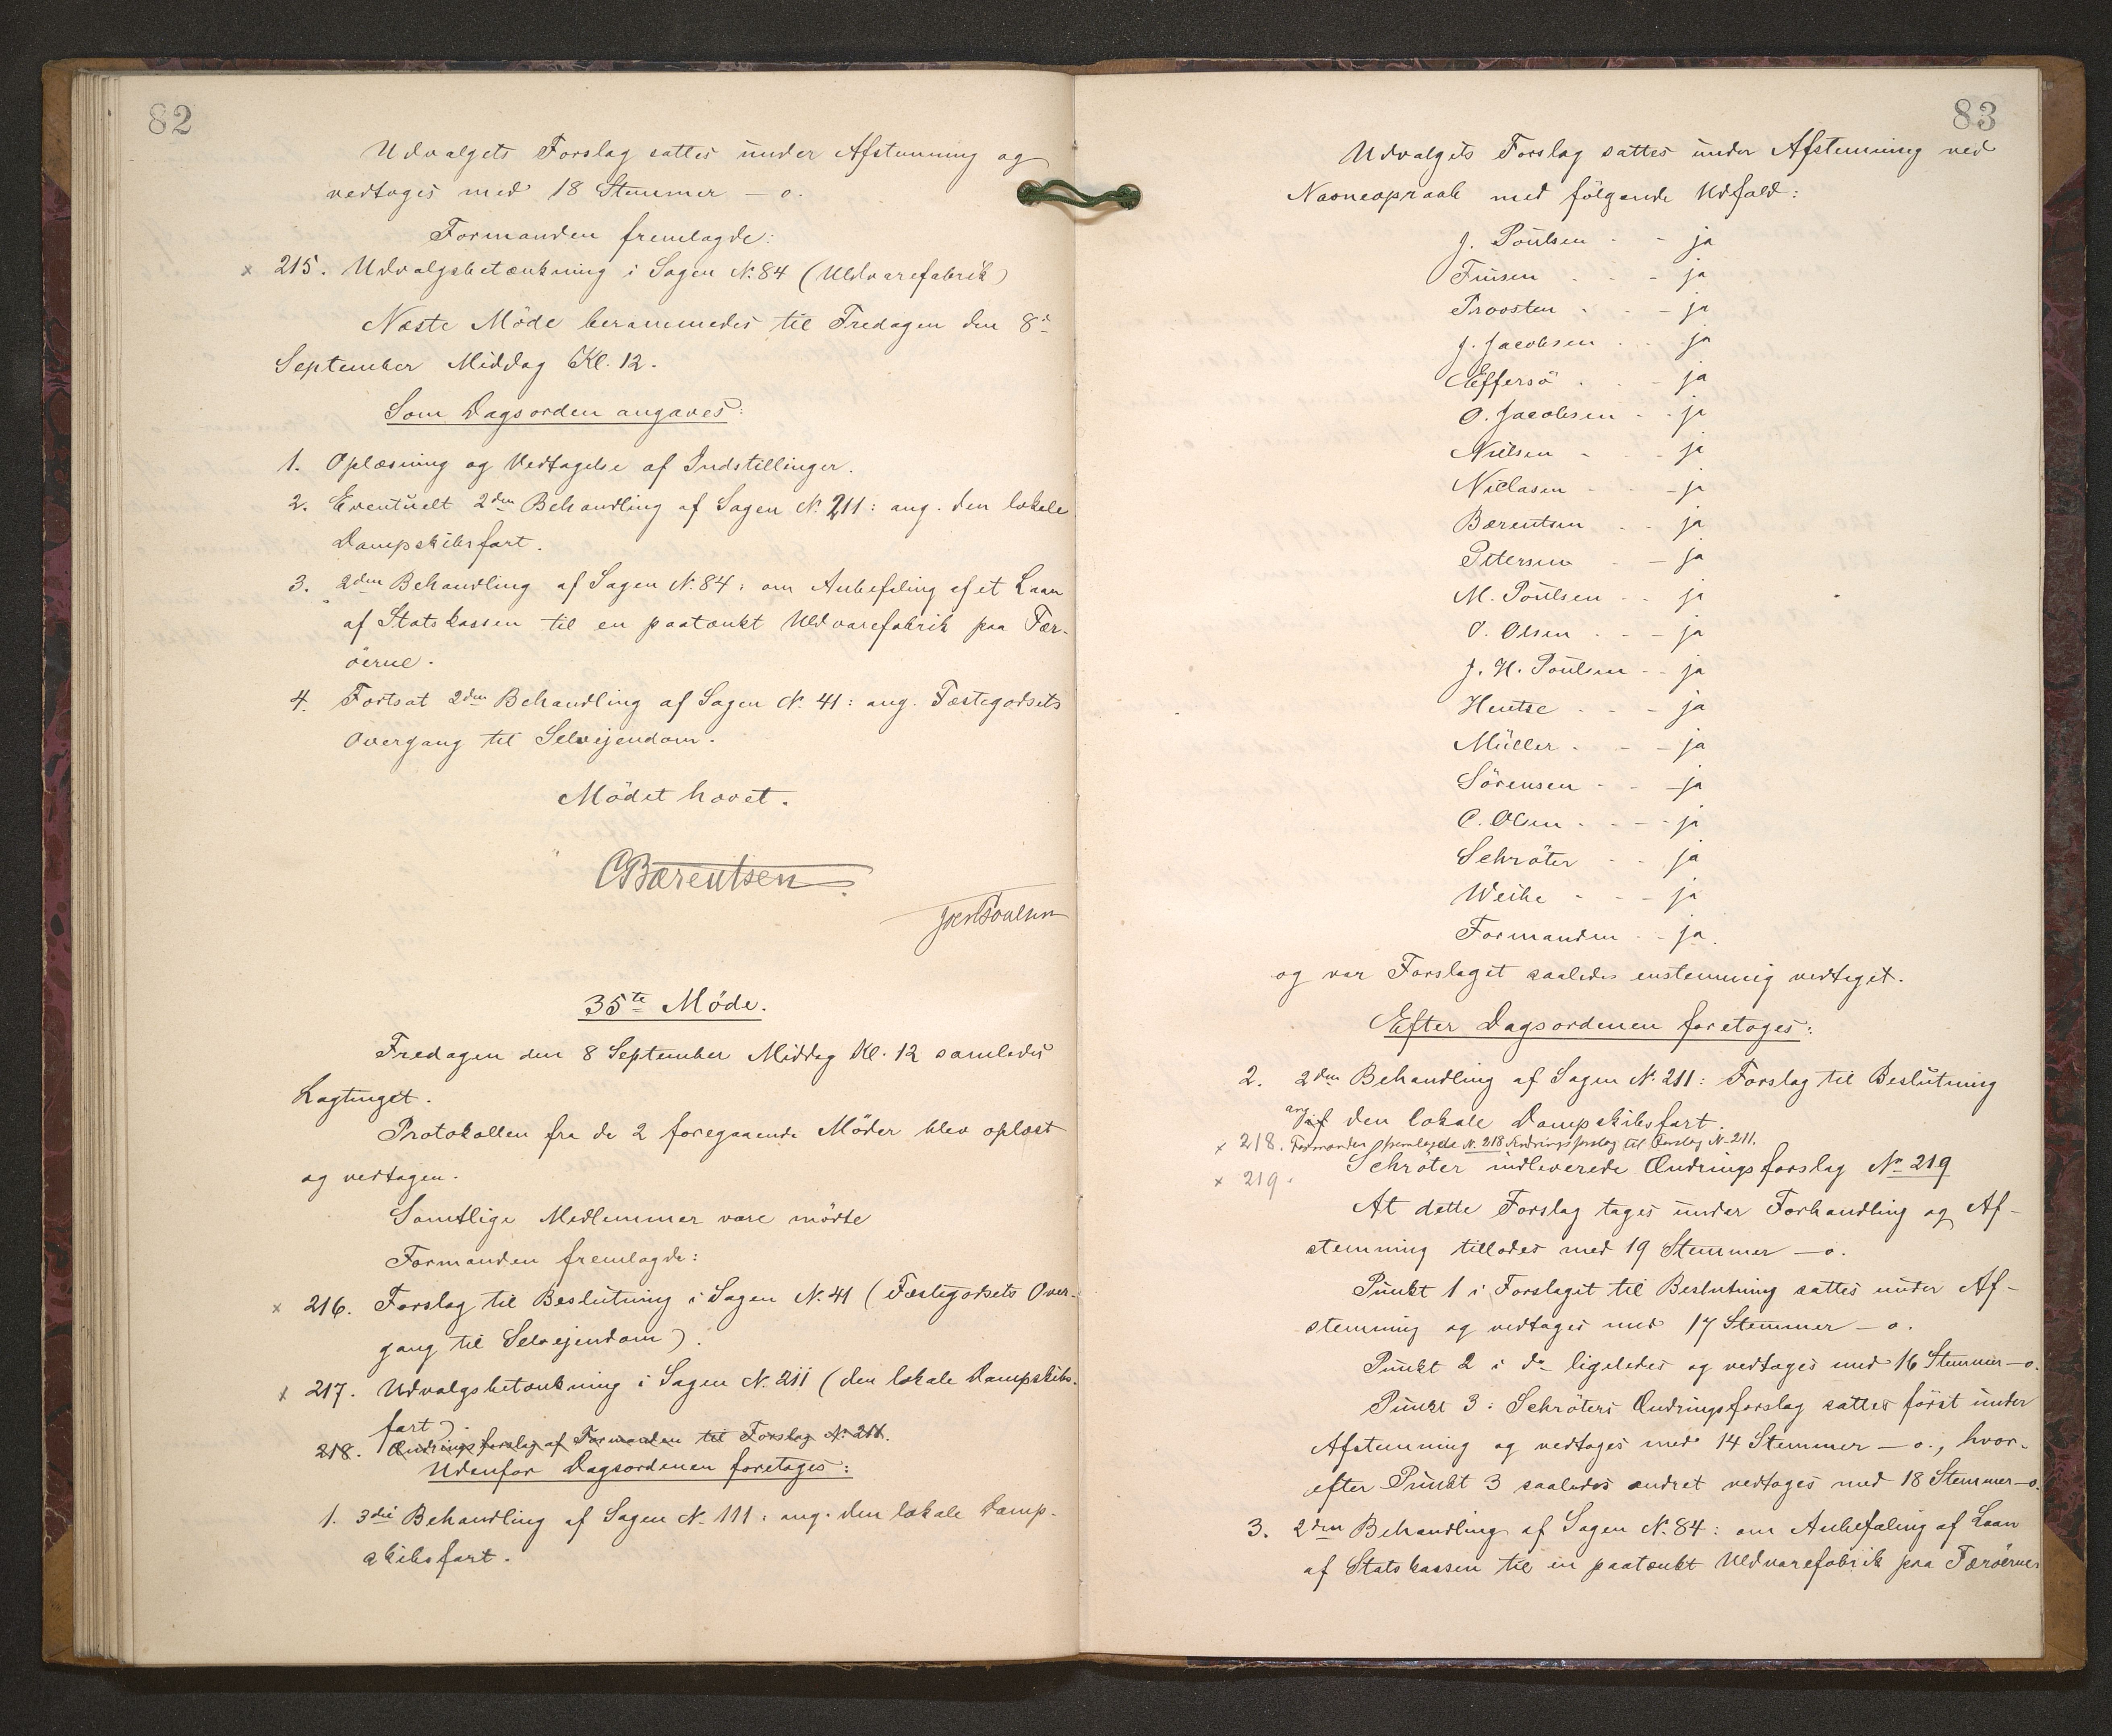 82
Udvalgets Forslag sattes under Afstemning og
vedtoges med 18 Stemmer – o.
Formanden fremlagde:
x 215. Udvalgsbetænkning i Sagen N. 84 (Uldvarefabrik)
Næste Møde berammedes til Fredagen den 8d
September Middag Kl. 12.
Som Dagsorden angaves:
1. Oplæsning og Vedtagelse af Indstillinger.
2. Eventuelt 2den Behandling af Sagen N. 211: ang. den lokale
Dampskibsfart.
3. 2den Behandling af Sagen N. 84: om Anbefaling af et Laan
af Statskassen til en paatænkt Uldvarefabrik paa Fær-
öerne.
4. Fortsat 2den Behandling af Sagen N. 41: ang. Fæstegodsets
Overgang til Selvejendom.
Mödet hævet.
CBærentsen
35te Möde.
Fredagen den 8 September Middag Kl. 12 samledes
Lagtinget.
Protokollen fra de 2 foregaaende Möder blev oplæst
og vedtagen.
Samtlige Medlemmer vare mödte
Formanden fremlagde:
x 216. Forslag til Beslutning i Sagen N. 41 (Fæstegodsets Over-
gang til Selvejendom).
x 217. Udvalgsbetænkning i Sagen N. 211 (den lokale Dampskibs-
fart).
218. Ændringsforslag af Formanden til Forslag N. 211.
Udenfor Dagsordenen foretoges:
1. 3die Behandling af Sagen N. 111: ang. den lokale Damp-
skibsfart.
83
Udvalgets Forslag sattes under Afstemning ved
Navneopraab med fölgende Udfald:
J. Poulsen - - ja
Finsen - - ja
Provsten - - ja
J. Jacobsen - - ja
Effersö - - ja
O. Jacobsen - - ja
Nielsen - - ja
Niclasen - - ja
Bærentsen - - ja
Petersen - - ja
M. Poulsen - - ja
O. Olsen - - ja
J. H. Poulsen - - ja
Hentze - - ja
Müller - - ja
Sörensen - - ja
C. Olsen - - ja
Schröter - - ja
Weihe - - ja
Formanden - - ja.
og var Forslaget saaledes enstemmig vedtaget.
Efter Dagsordenen foretoges:
2. 2den Behandling af Sagen N. 211: Forslag til Beslutning
ang. den lokale Dampskibsfart.
x 218. Formanden fremlagde N. 218 Ændringsforslag til Forslag N. 211.
x 219. Schröter indleverede Ændringsforslag No 219
At dette Forslag tages under Forhandling og Af-
stemning tillodes med 19 Stemmer – o.
Punkt 1 i Forslaget til Beslutning sattes under Af-
stemning og vedtoges med 17 Stemmer – o.
Punkt 2 i do ligeledes og vedtoges med 16 Stemmer – o.
Punkt 3: Schröters Ændringsforslag sattes först under
Afstemning og vedtoges med 14 Stemmer – o., hvor-
efter Punkt 3 saaledes ændret vedtoges med 18 Stemmer – o.
3. 2den Behandling af Sagen N. 84: om Anbefaling af Laan
af Statskassen til en paatænkt Uldvarefabrik paa Færöerne